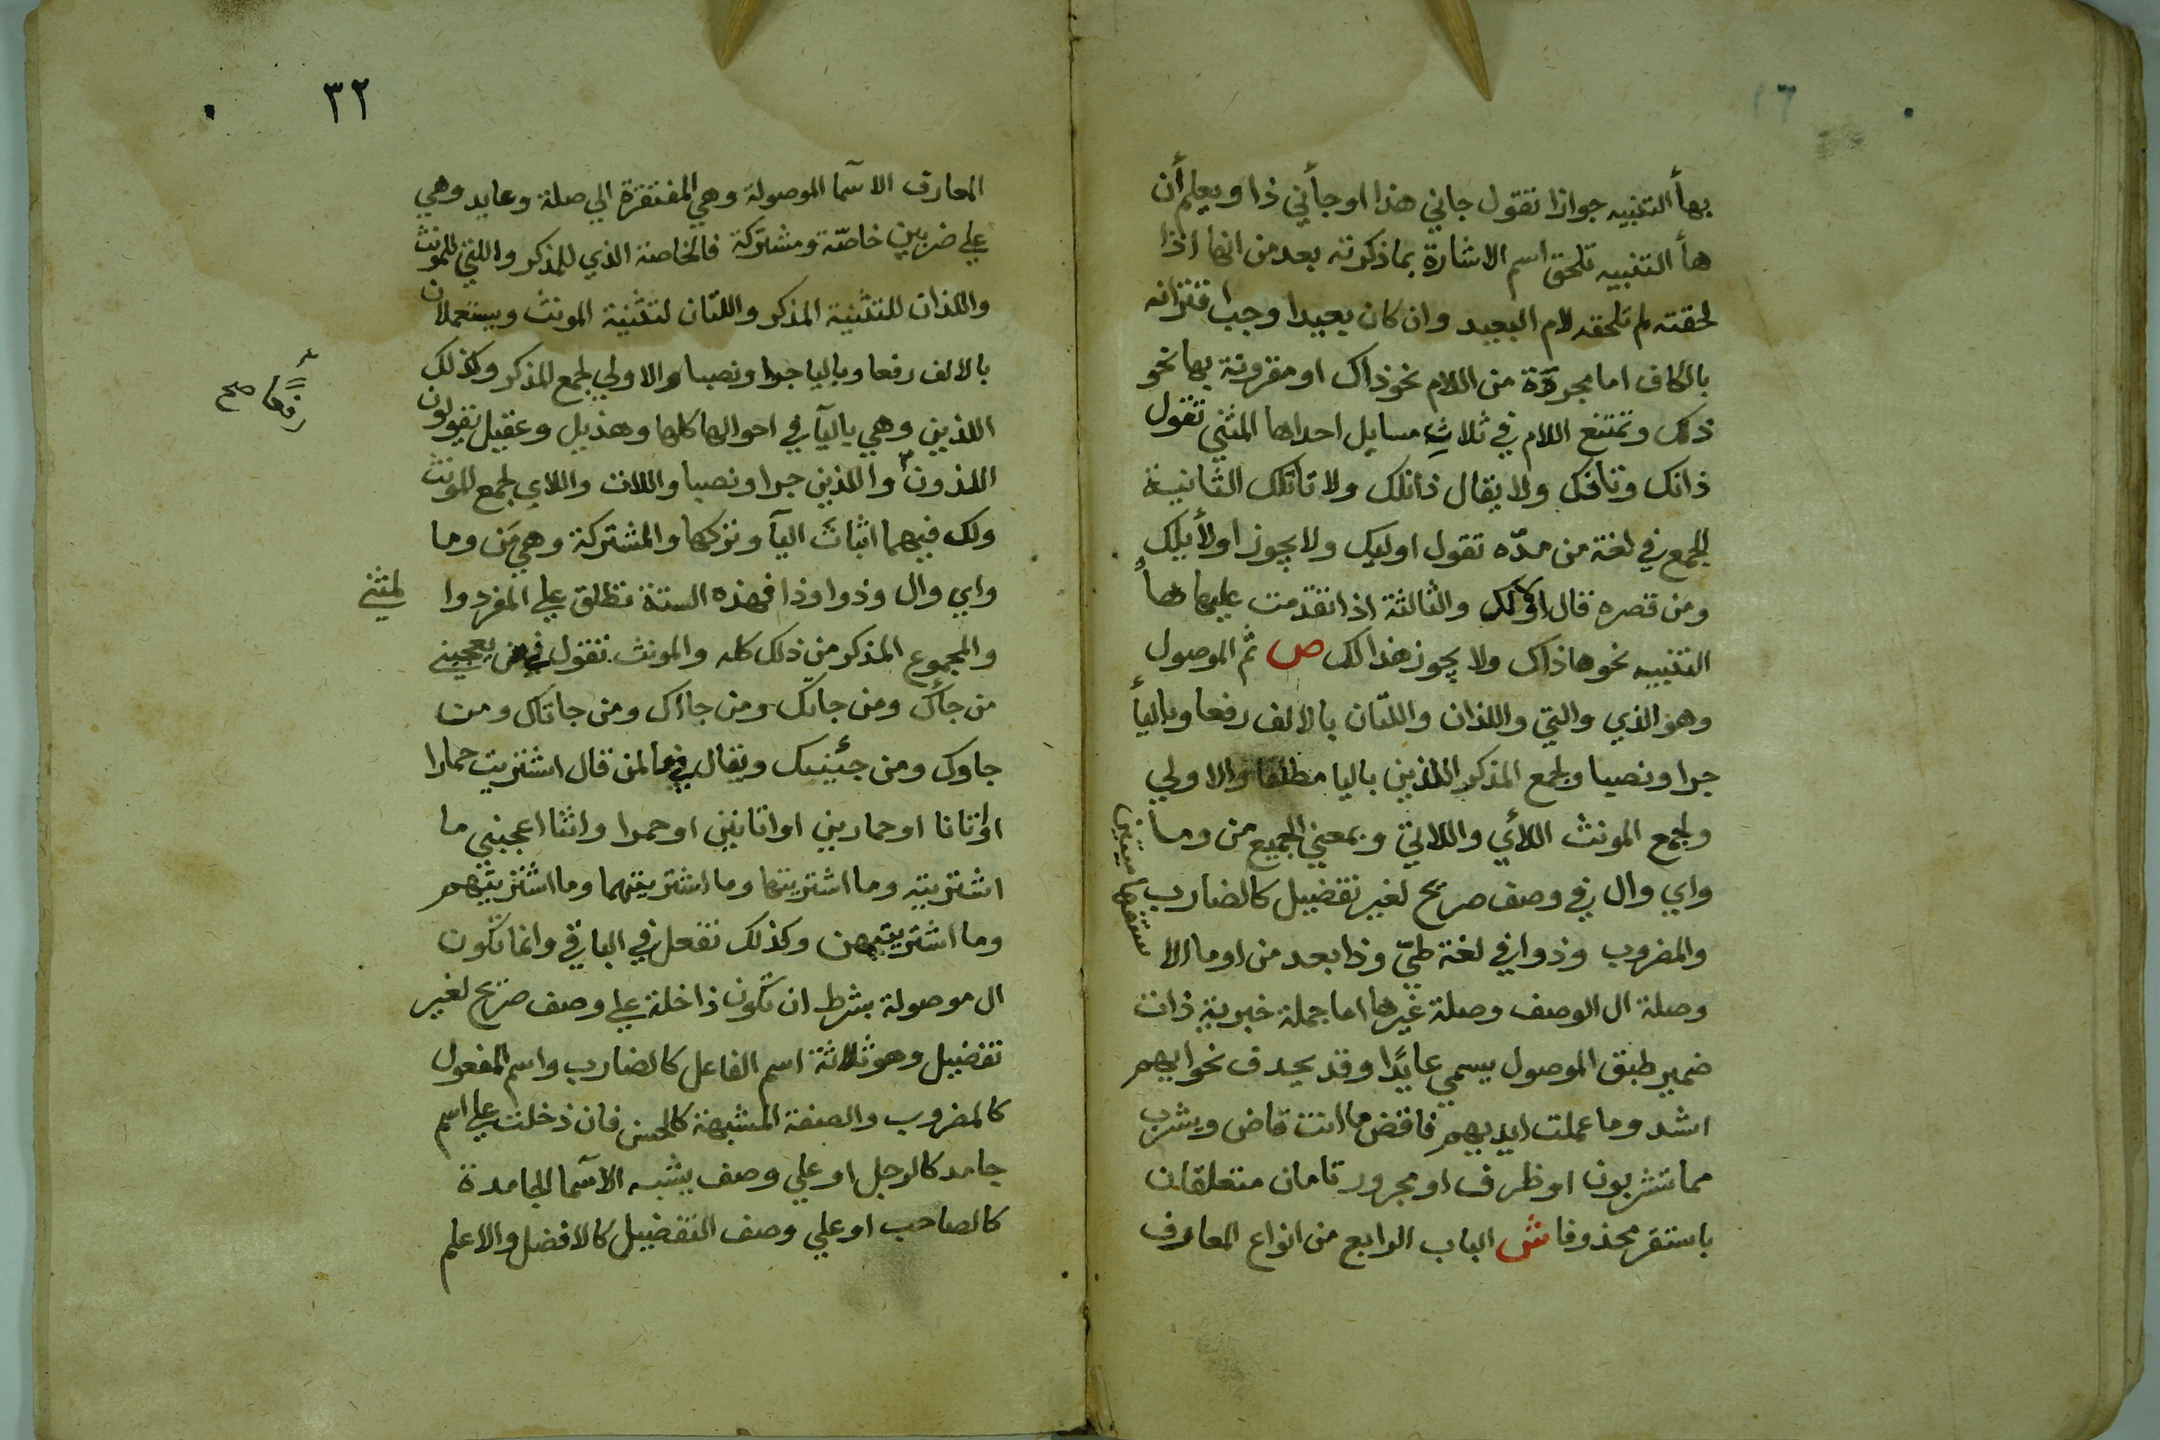 بهأ التنبيه جوازا نقول جاني هذا او جأني ذا ويعلم أن
هأ التنبيه تلحق اسم الاشارة بما ذكرته بعد من انها اذا
لحقته لم تلحقه لام البعيد وان كان بعيدا وجب اقترانه
بالكاف اما مجردة من اللام نحو ذاك او مقرونة بها نحو
ذلك وتمتنع اللام في ثلاث مسايل احداها المثني تقول
ذانك وتانك ولا يقال ذانلك ولا تانلك الثانية
الجمع في لغة من مدّه تقول اوليك ولا يجوز اولأيلك
ومن قصره قال اولالك والثالثة اذا تقدمت عليها هأ
التنبيه نحو هاذاك ولا يجوز هذالك ص ثم الموصول
وهو الذي والتي واللذان واللتان بالالف رفعا وباليأ
جرا ونصبا ولجمع المذكر اللذين باليا مطلقا والاولي
ولجمع المونث اللأي واللاتي وبمعني الجميع من وما
واي وال في وصف صريح لغير تفضيل كالضارب
والمضروب وذوا في لغة طيّ وذا بعد من او ما الا
ستفهاميتين
وصلة ال الوصف وصلة غيرها اما جملة خبرية ذات
ضمير طبق الموصول يسمي عايدًا وقد يحدف نحو ايهم
اشد وما عملت ايديهم فاقض ما انت قاض ويشرب
مما تشربون او ظرف او مجرور تامان متعلقان
باستقر محذوفا ش الباب الرابع من انواع المعارف
٣٢
المعارف الاسما الموصولة وهي المفتقرة الي صلة وعايد وهي
علي ضربين خاصّة ومشتركة فالخاصة الذي للمذكر واللتي للمونث
واللذان للتثنية المذكر واللتان لتثنية المونث ويستعملان
بالالف رفعا وباليا جرا ونصبا والاولي لجمع المذكر وكذلك
اللذين وهي باليآ في احوالها كلها وهذيل وعقيل تقولون
اللذون واللذين جرا ونصبا واللات واللاي لجمع المونث
رفعا صح
ولك فيهما اثبات اليآ وتركها والمشتركة وهي مَن وما
واي وال وذوا وذا فهذه الستة تطلق علي المفرد وا
لمثني
والمجموع المذكر من ذلك كله والمونث تقول في من يعجبني
من جأك ومن جاتك ومن جااك ومن جاتاك ومن
جاوك ومن جئينك ويقال في ما لمن قال اشتريت حمارا
او اتانا او حمارين او اتانين او حمرا واتنا اعجبني ما
اشتريته وما اشتريتها وما اشتريتهما وما اشتريتهم
وما اشتريتهن وكذلك تفعل في الباقي وانما تكون
ال موصولة بشرط ان تكون داخلة علي وصف صريح لغير
تفضيل وهو ثلاثة اسم الفاعل كالضارب واسم المفعول
كالمضروب والصفة المشبهة كالحسن فان دخلت علي اسم
جامد كالرجل او علي وصف يشبه الاسما الجامدة
كالصاحب او علي وصف التفضيل كالافضل والاعلم